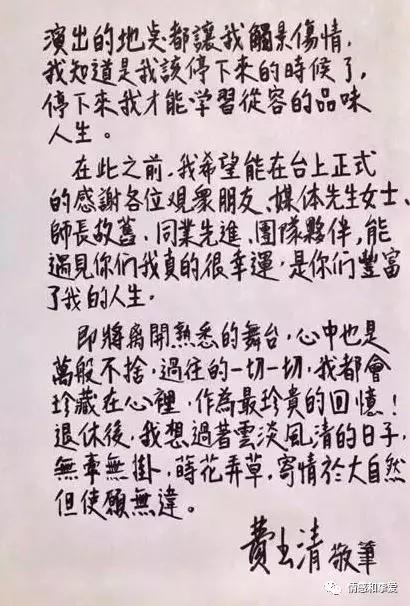 演出的地點都讓我觸景傷情,
我知道是我該停下來的時候了,
停下來我才能学習從容的品味
人生。
在此之前,我希望能在台上正式
的感謝各位观眾朋友、媒体先生女士、
師長故舊、同業先進、團隊夥伴,能
遇見你们我真的很幸運,是你们豐富
了我的人生。
即將离開熟悉的舞台,心中也是
萬般不捨,過往的一切一切,我都會
珍藏在心裡,作為最珍貴的回憶!
退休後,我想過著雲淡風清的日子,
無牽無掛,蒔花弄草,寄情於大自然
但使願無違。
費玉清 敬筆
情感和挚爱